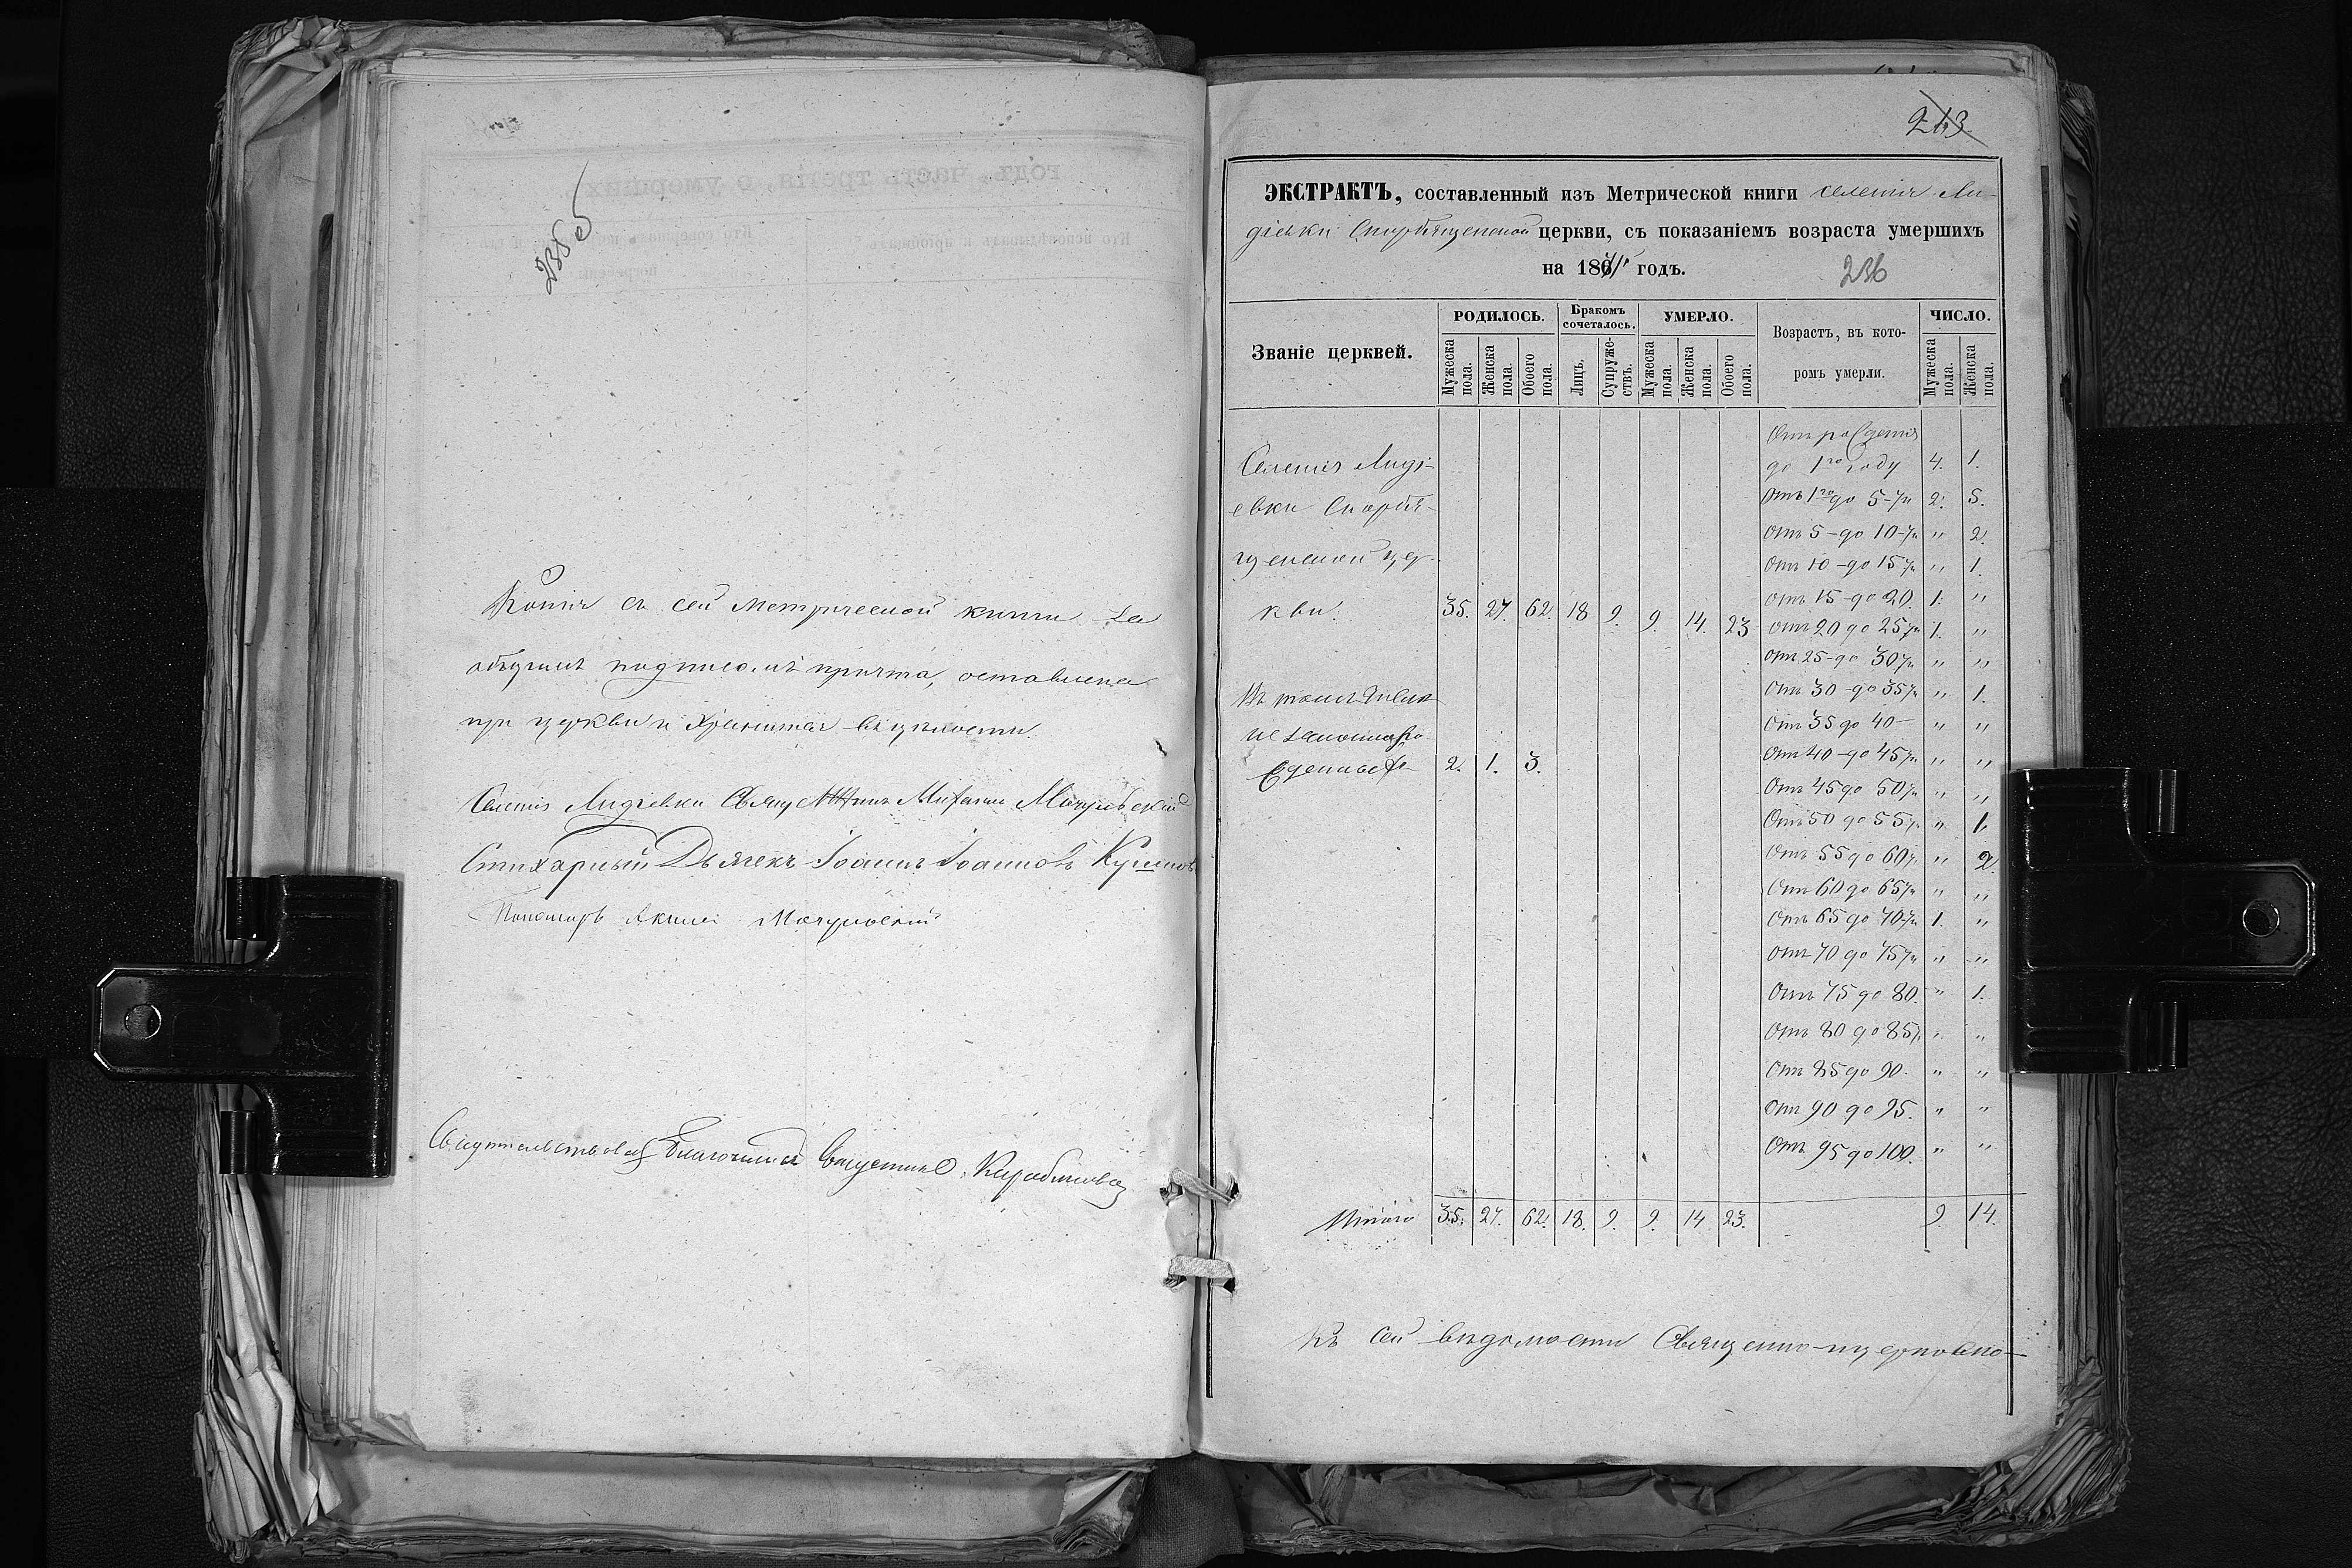 235 об
Копія съ сей метрической книги за
общимъ подписомъ причта, оставлена
при церкви и хранится въ цѣлости.
Селенія Лидіевки Свящ
Стихарный Дьячекъ Іоаннъ Іоанновъ
Пономарь
Свидетельствовалъ Благочинный Священникъ
243
ЭКСТРАКТЪ, составленный изъ Метрической книги селенія Ли-
діевки Скорбященской церкви, съ показаніемъ возраста умершихъ
на 186 годъ.
236
Званіе церквей.
РОДИЛОСЬ.
Бракомъ сочеталось.
УМЕРЛО.
Возрастъ, въ кото-
ромъ умерли.
ЧИСЛО.
Мужеска пола. Женска пола. Обоего пола. Лицъ. Супруже-ствъ. Мужеска пола. Женска пола. Обоего пола. Мужеска пола. Женска пола.
Отъ рожденія
Селенія Лиді- до 1го году 4. 1.
евки Скорбя- Отъ 1го до 5-ти 2. 5.
Отъ 5-до 10-ти " 2.
щенской цер- Отъ 10-до 15ти " 1.
Отъ 15-до 20. 1. "
кви. 35. 27. 62. 18 9. 9. 14. 23 Отъ 20 до 25ти 1. "
Отъ 25-до 30ти " "
Въ томъ числѣ Отъ 30-до 35ти " 1.
незаконноро Отъ 35 до 40- " "
жденныхъ 2. 1. 3. Отъ 40-до 45ти " "
Отъ 45 до 50ти " "
Отъ 50 до 55ти " 1.
Отъ 55 до 60ти " 2.
Отъ 60 до 65ти " "
Отъ 65 до 70-ти 1. "
Отъ 70 до 75ти " "
Отъ 75 до 80. " 1.
Отъ 80 до 85ти " "
Отъ 85 до 90. " "
Отъ 90 до 95. " "
Отъ 95 до 100. " "
Итого 35. 27. 62. 18. 9. 9. 14 23. 9. 14.
Къ сей вѣдомости Священно-церковно-